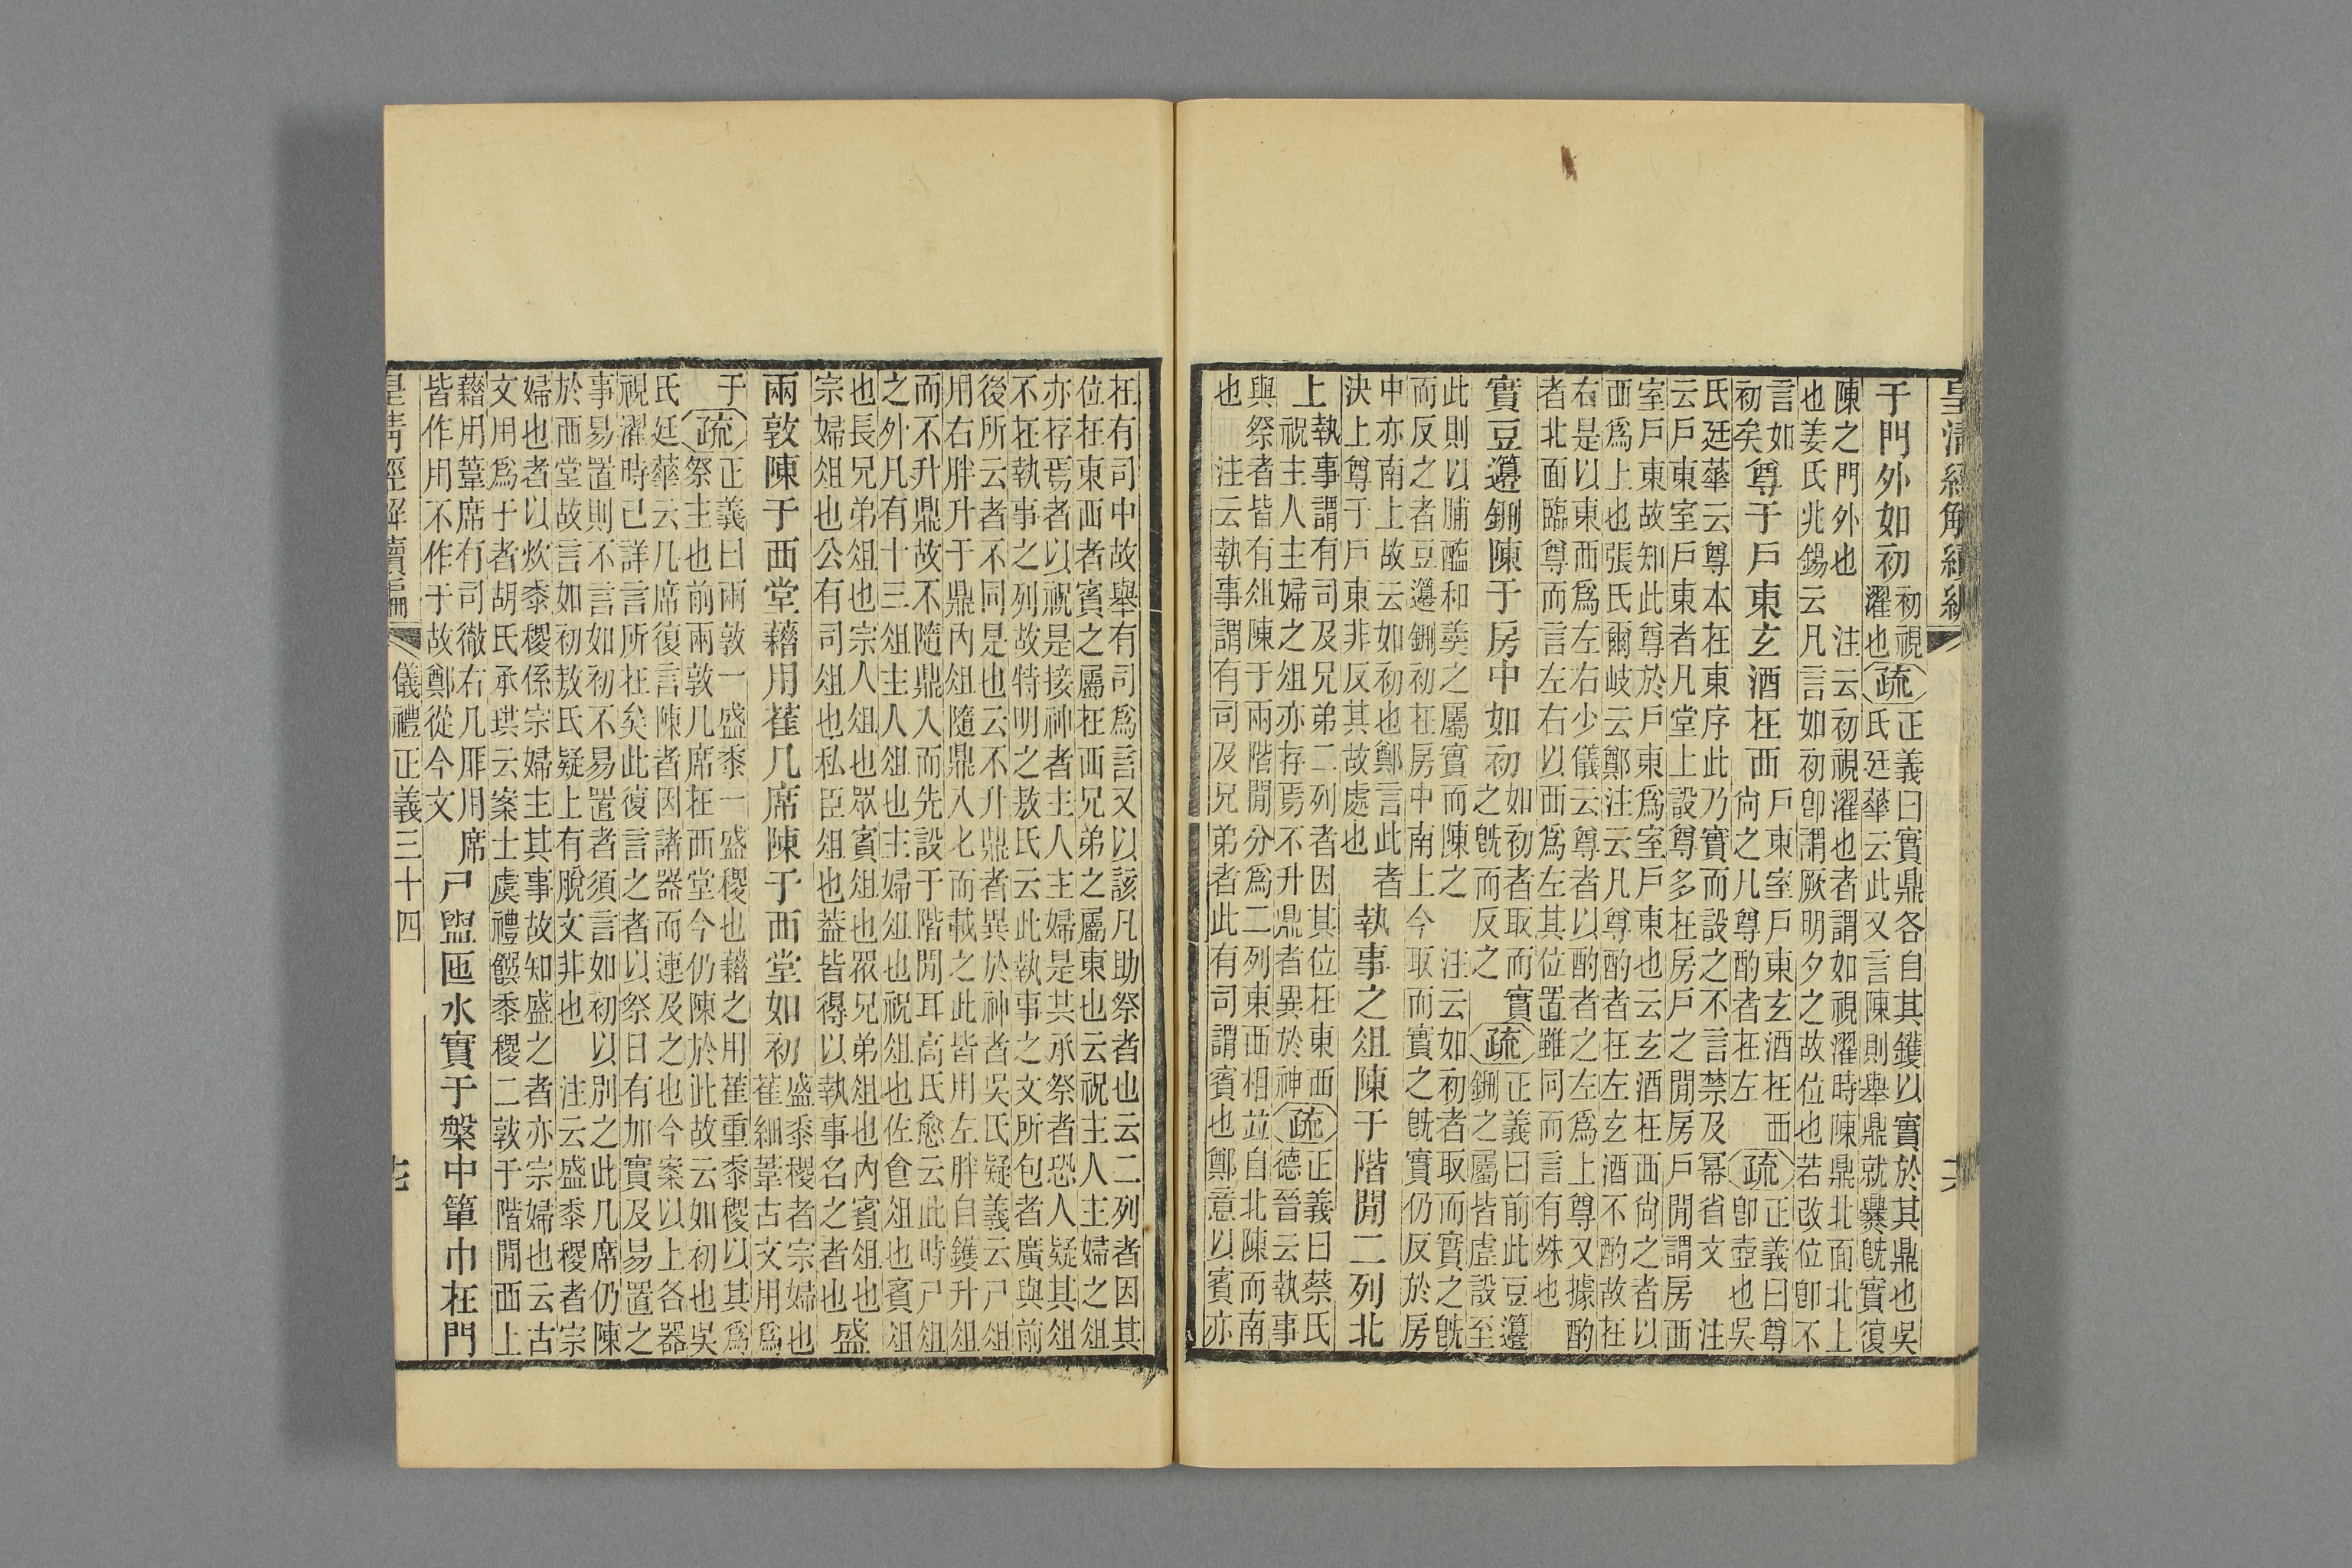 皇清經解續編
于門外如初
初視
濯也
疏
正義曰實鼎各自其鑊以實於其鼎也吳
氏廷華云此又言陳則舉鼎就爨旣實復
陳之門外也　注云初視濯也者謂如視濯時陳鼎北面北上
也姜氏兆錫云凡言如初卽謂厥明夕之故位也若改位卽不
言如
初矣
尊于戶東玄酒在西
戶東室戶東玄酒在西
尙之凡尊酌者在左
疏
正義曰尊
卽壺也吳
氏廷華云尊本在東序此乃實而設之不言禁及冪省文　注
云戶東室戶東者凡堂上設尊多在房戶之閒房戶閒謂房西
室戶東故知此尊於戶東爲室戶東也云玄酒在西尙之者以
西爲上也張氏爾岐云鄭注云凡尊酌者在左玄酒不酌故在
右是以東而爲左右少儀云尊者以酌者之左爲上尊又據酌
者北面臨尊而言左右以西爲左其位置雖同而言有殊也
實豆籩鉶陳于房中如初
如初者取而實
之旣而反之
疏
正義曰前此豆籩
鉶之屬皆虛設至
此則以脯醢和羹之屬實而陳之　注云如初者取而實之旣
而反之者豆籩鉶初在房中南上今取而實之旣實仍反於房
中亦南上故云如初也鄭言此者
決上尊于戶東非反其故處也
執事之俎陳于階閒二列北
上
執事謂有司及兄弟二列者因其位在東西
祝主人主婦之俎亦存焉不升鼎者異於神
疏
正義曰蔡氏
德晉云執事
與祭者皆有俎陳于兩階閒分爲二列東西相並自北陳而南
也　注云執事謂有司及兄弟者此有司謂賓也鄭意以賓亦
在有司中故舉有司爲言又以該凡助祭者也云二列者因其
位在東西者賓之屬在西兄弟之屬東也云祝主人主婦之俎
亦存焉者以祝是接神者主人主婦是其承祭者恐人疑其俎
不在執事之列故特明之敖氏云此執事之文所包者廣與前
後所云者不同是也云不升鼎者異於神者吳氏疑義云尸俎
用右胖升于鼎內俎隨鼎入匕而載之此皆用左胖自鑊升俎
而不升鼎故不隨鼎入而先設于階閒耳高氏愈云此時尸俎
之外凡有十三俎主人俎也主婦俎也祝俎也佐食俎也賓俎
也長兄弟俎也宗人俎也眾賓俎也眾兄弟俎也內賓俎也
宗婦俎也公有司俎也私臣俎也蓋皆得以執事名之者也
盛
兩敦陳于西堂藉用萑几席陳于西堂如初
盛黍稷者宗婦也
萑細葦古文用爲
于
疏
正義曰兩敦一盛黍一盛稷也藉之用萑重黍稷以其爲
祭主也前兩敦几席在西堂今仍陳於此故云如初也吳
氏廷華云几席復言陳者因諸器而連及之也今案以上各器
視濯時已詳言所在矣此復言之者以祭日有加實及易置之
事易置則不言如初不易置者須言如初　以別之此几席仍陳
於西堂故言如初敖氏疑上有脫文非也　注云盛黍稷者宗
婦也者以炊黍稷係宗婦主其事故知盛之者亦宗婦也云古
文用爲于者胡氏承珙云案士虞禮饌黍稷二敦于階閒西上
藉用葦席有司徹右几厞用席
皆作用不作于故鄭從今文
尸盥匜水實于槃中簞巾在門
皇清經解續編
儀禮正義三十四